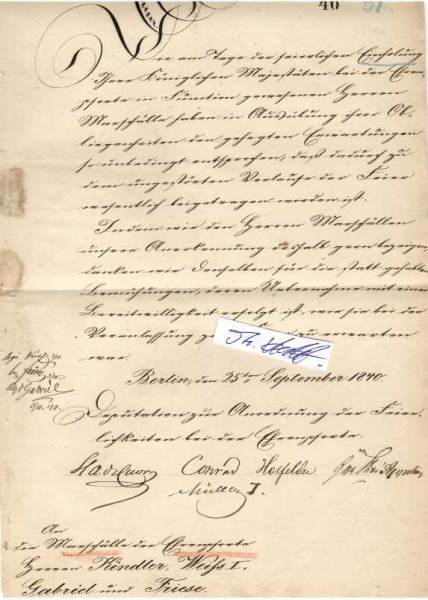 40 51
Die am Tage der feierlichen Einholung
Ihrer Königlichen Majestäten bei der Ehren-
pforte in Function gewesenen Herren
Marschälle haben in Ausübung ihrer Ob-
liegenheiten den gehegten Erwartungen
so unbedingt entsprochen, daß dadurch zu
dem ungestörten Verlaufe der Feier
wesentlich beigetragen worden ist.
Indem wir den Herren Marschällen
unsere Anerkennung deshalb gern bezeigen,
danken wir denselben für die statt gehabten
Bemühungen, deren Uebernahme mit einer
Bereitwilligkeit erfolgt ist, wie sie bei der
Veranlassung zu erwarten
war.
Berlin, den 25ten September 1840.
Deputation zur Anordnung der Feier-
lichkeiten bei der Ehrenpforte.
Conrad Hotfelder
Müller I.
An
die Marschälle der Ehrenpforte
Herren Kindler, Weiss I.
Gabriel und Friese.
Gabriel